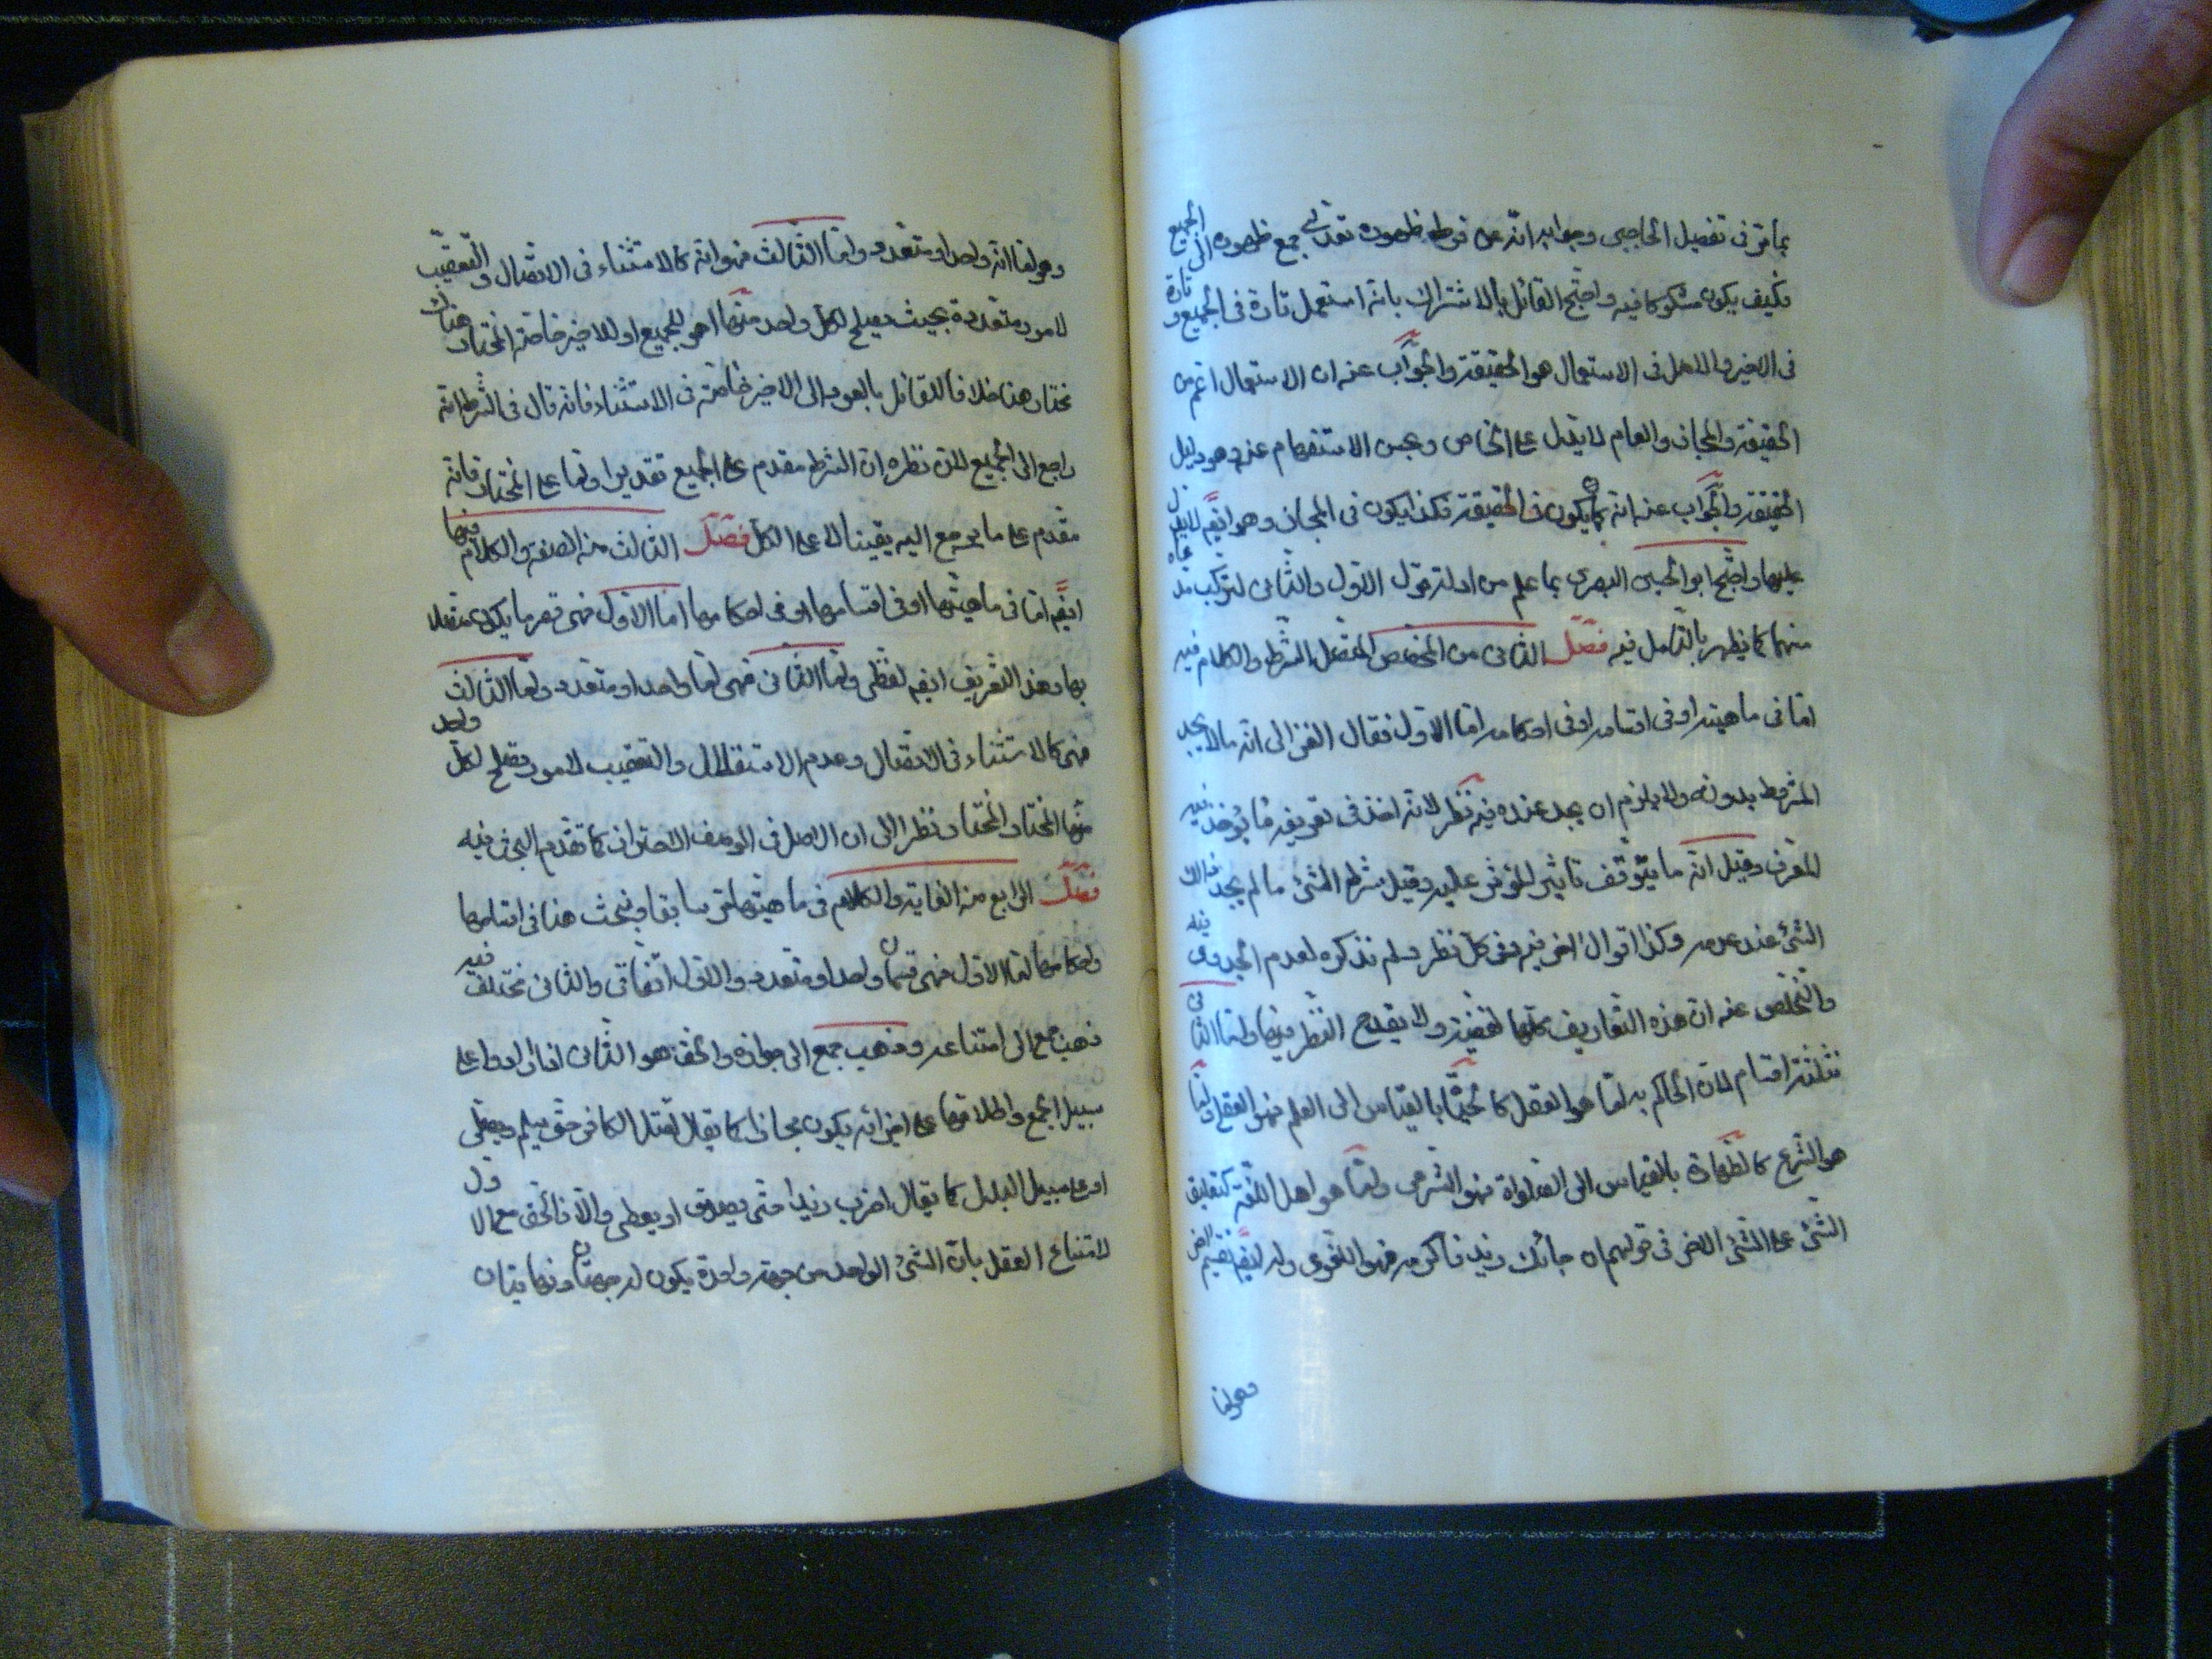 بما مر فى تفصيل الحاجبى وجوابه انه عن توسط ظهوره جمع ظهوره الى الجميع
فكيف يكون مشكوكا فيه واحتج القائل بالاشتراك بانه استعمل تارة فى الجميع و تارة
فى الاخير والاصل فى الاستعمال هو الحقيقة والجواب عنه ان الاستعمال اعم من
الحقيقة والمجاز والعام لا يدل على الخاص وبحسن الاستفهام عنه وهو دليل
الحقيقة والجواب عنه انه كما يكون فى الحقيقة فكذا يكون فى المجاز وهو ايضم
عليها واحتج ابو الحسين البصرى بما علم من ادلة قول الاول والثانى لتركب مدعاه
منهما كما يظهر بالتامل فيه فصل الثانى من المخصص المتصل الشرط والكلام فيه
اما فى ماهيته او فى اقسامه او فى احكامه اما الاول فقال الغزالى انه ما لا يوجد
المشروط بدونه ولا يلزم ان يوجد عنده فيه نظر لانه اخذ فى تعريفه ما يوخذ فيه
المعرف وقيل انه ما يتوقف تاثير المؤثر عليه وقيل شرط الشئ ما لم يوجد ذالك
الشئ عند عدمه وكذا اقوال اخر فيه وفى كل نظر ولم نذكره لعدم الجدوى فيه
والتخلص عنه ان هذه التعاريف كلها لفظية ولا يقدح النظر فيها واما الثانى
ثلثة اقسام لان الحاكم به اما هو العقل كا بالقياس الى العلم فهو العقلى واما
هو الشرع كالطهارة بالقياس الى الصلواة فهو الشرعى واما هو اهل اللغة كتعليق
الشئ على الشئ الاخر فى قولهم ان جائك زيد فاكرمه فهو اللغوى وله ايضم تقسيم اخر
وهو اما
وهو اما انه واحد او متعدد واما الثالث فهو انه كالاستثناء فى الاتصال والتعقيب
لامور متعددة بحيث يصلح لكل واحد منها اهو للجميع او للاخير خاصة المختار هناك
نختار هنا خلافا للقائل بالعود الى الاخير خاصة فى الاستثناء فانه قال فى الشرط انه
راجع الى الجميع لان نظره ان الشرط مقدم على الجميع تقديرا واما على المختار فانه
مقدم على ما يرجع اليه يقينا لا على الكل فصل الثالث منه الصفة والكلام فيها
ايضم اما فى ماهيتها او فى اقسامها او فى احكامها اما الاول فهى قصر ما يكون متصلا
بها وهذا التعريف ايضم لفظى واما الثانى فهى اما واحد او متعدد واما الثالث
فهى كالاستثناء فى الاتصال وعدم الاستقلال والتعقيب لامور يصلح لكل واحد
منها المختار المختار نظرا الى ان الاصل فى الوصف الاحتراز كما تقدم البحث فيه
فصل الرابع منه الغاية والكلام فى ماهيتها مر سابقا ونبحث هنا فى اقسامها
واحكامها اما الاول فهى قسمان واحد او متعدد والاول اتفاقى والثانى مختلف فيه
ذهب جمع الى امتناعه وذهب جمع الى جوازه والحق هو الثانى اذا ارادوا على
سبيل الجمع واطلاقها على اخرائه يكون مجازا كما يقال اقتل الكافر حتى يسلم ويصلى
او على سبيل البدل كما يقال اضرب زيدا حتى يصدق او يعطى والا فالحق مع الاول
لامتناع العقل بان الشئ الواحد من جهة واحدة يكون له جهتان ونهايتان